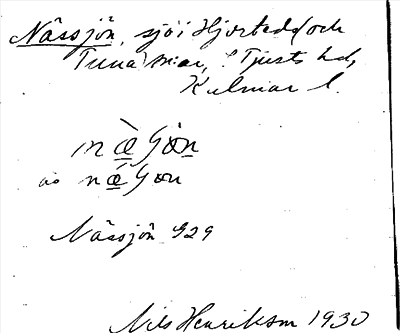 Nässjön, sjö i Hjorted och
Tuna snar, S Tjusts hd,
Kalmar l.
næ̀Gön
nǽGön
Nässjön G29
Nils Henriksson 1930